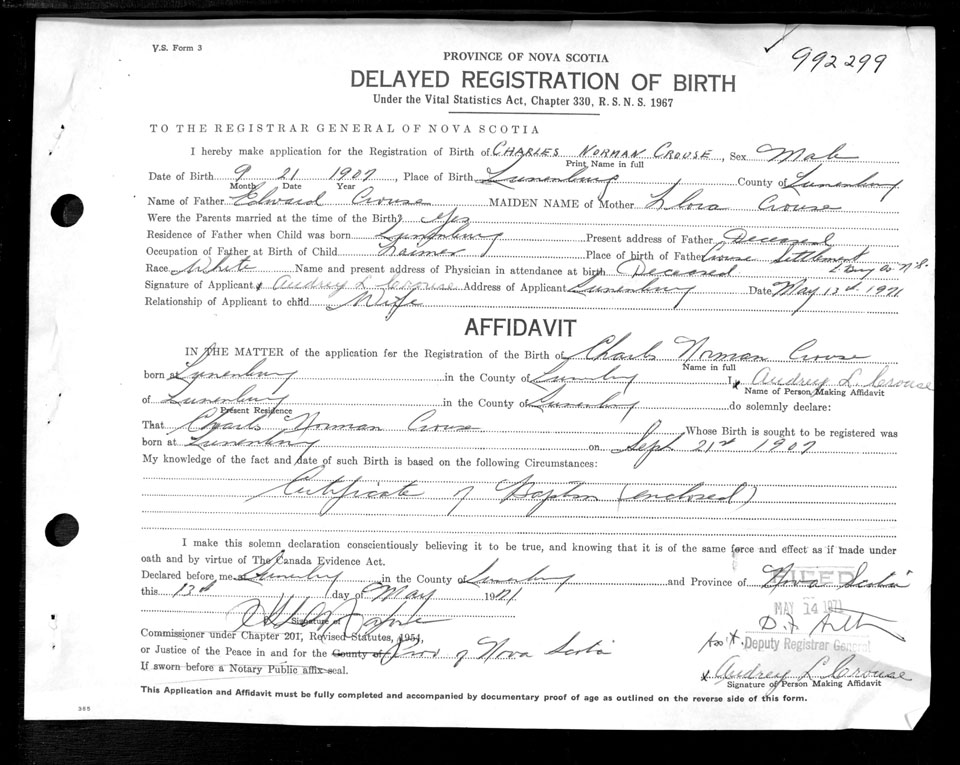 V.S. Form 3
992299
PROVINCE OF NOVA SCOTIA
DELAYED REGISTRATION OF BIRTH
Under the Vital Statistics Act, Chapter 330, R.S.N.S. 1967
TO THE REGISTRAR GENERAL OF NOVA SCOTIA
I hereby make application for the Registration of Birth of CHARLES NORMAN CROUSE, Sex Male
Print Name in full
Date of Birth 9 21 1907, Place of Birth Lunenburg County of Lunenburg
Month Date Year
Name of Father Edward Crouse MAIDEN NAME of Mother Flora Crouse
Were the Parents married at the time of the Birth? Yes
Residence of Father when Child was born Lunenburg Present address of Father Deceased
Occupation of Father at Birth of Child Place of birth of Father Crouse Settlement
Race White Name and present address of Physician in attendance at birth Deceased Co N.S.
Signature of Applicant x Audrey L Crouse Address of Applicant Lunenburg Date May 13th 1971
Relationship of Applicant to child Wife
AFFIDAVIT
IN THE MATTER of the application for the Registration of the Birth of Charles Norman Crouse
Name in full
born at Lunenburg in the County of Lunenburg I, x Audrey L. Crouse
Name of Person Making Affidavit
of Lunenburg in the County of Lunenburg do solemnly declare:
Present Residence
That Charles Norman Crouse Whose Birth is sought to be registered was
born at Lunenburg on Sept 21st 1907
My knowledge of the fact and date of such Birth is based on the following Circumstances:
Certificate of Baptism (enclosed)
I make this solemn declaration conscientiously believing it to be true, and knowing that it is of the same force and effect as if made under
oath and by virtue of The Canada Evidence Act.
Declared before me at Lunenburg in the County of Lunenburg and Province of Nova Scotia
this 13th day of May 1971
MAY 14 1971
Signature of
Commissioner under Chapter 201, Revised Statutes, 1954,
Ass't. Deputy Registrar General
or Justice of the Peace in and for the County of Prov of Nova Scotia
If sworn before a Notary Public affix seal.
x Audrey L Crouse
Signature of Person Making Affidavit
This Application and Affidavit must be fully completed and accompanied by documentary proof of age as outlined on the reverse side of this form.
385